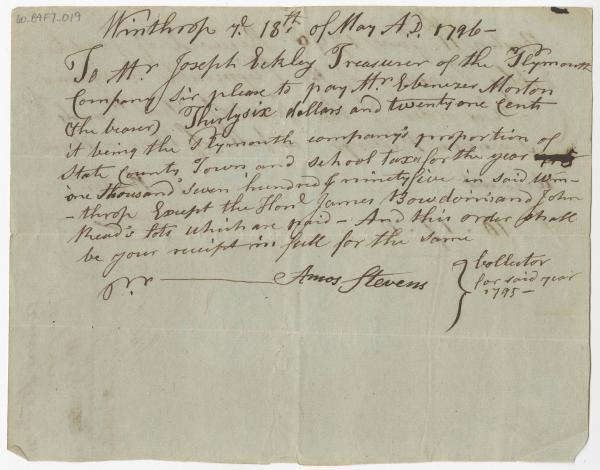 60_B4F7_019
Winthrop yᵉ 18th of May AD. 1796 —
To Mr Joseph Eckley Treasurer of the Plymouth
Company Sir please to pay Mr Ebenezer Morton
(the bearer) Thirtysix dollars and twenty one Cents
it being the Plymouth company's proportion of
State County Town and school taxes for the year
one thousand seven hundred & ninety five in said Win-
-throp Except the Honl James Bowdoin's and John
Read's lots which are paid — And this order shall
be your receipt in full for the same
Amos Stevens } Collector
for said year
1795 —